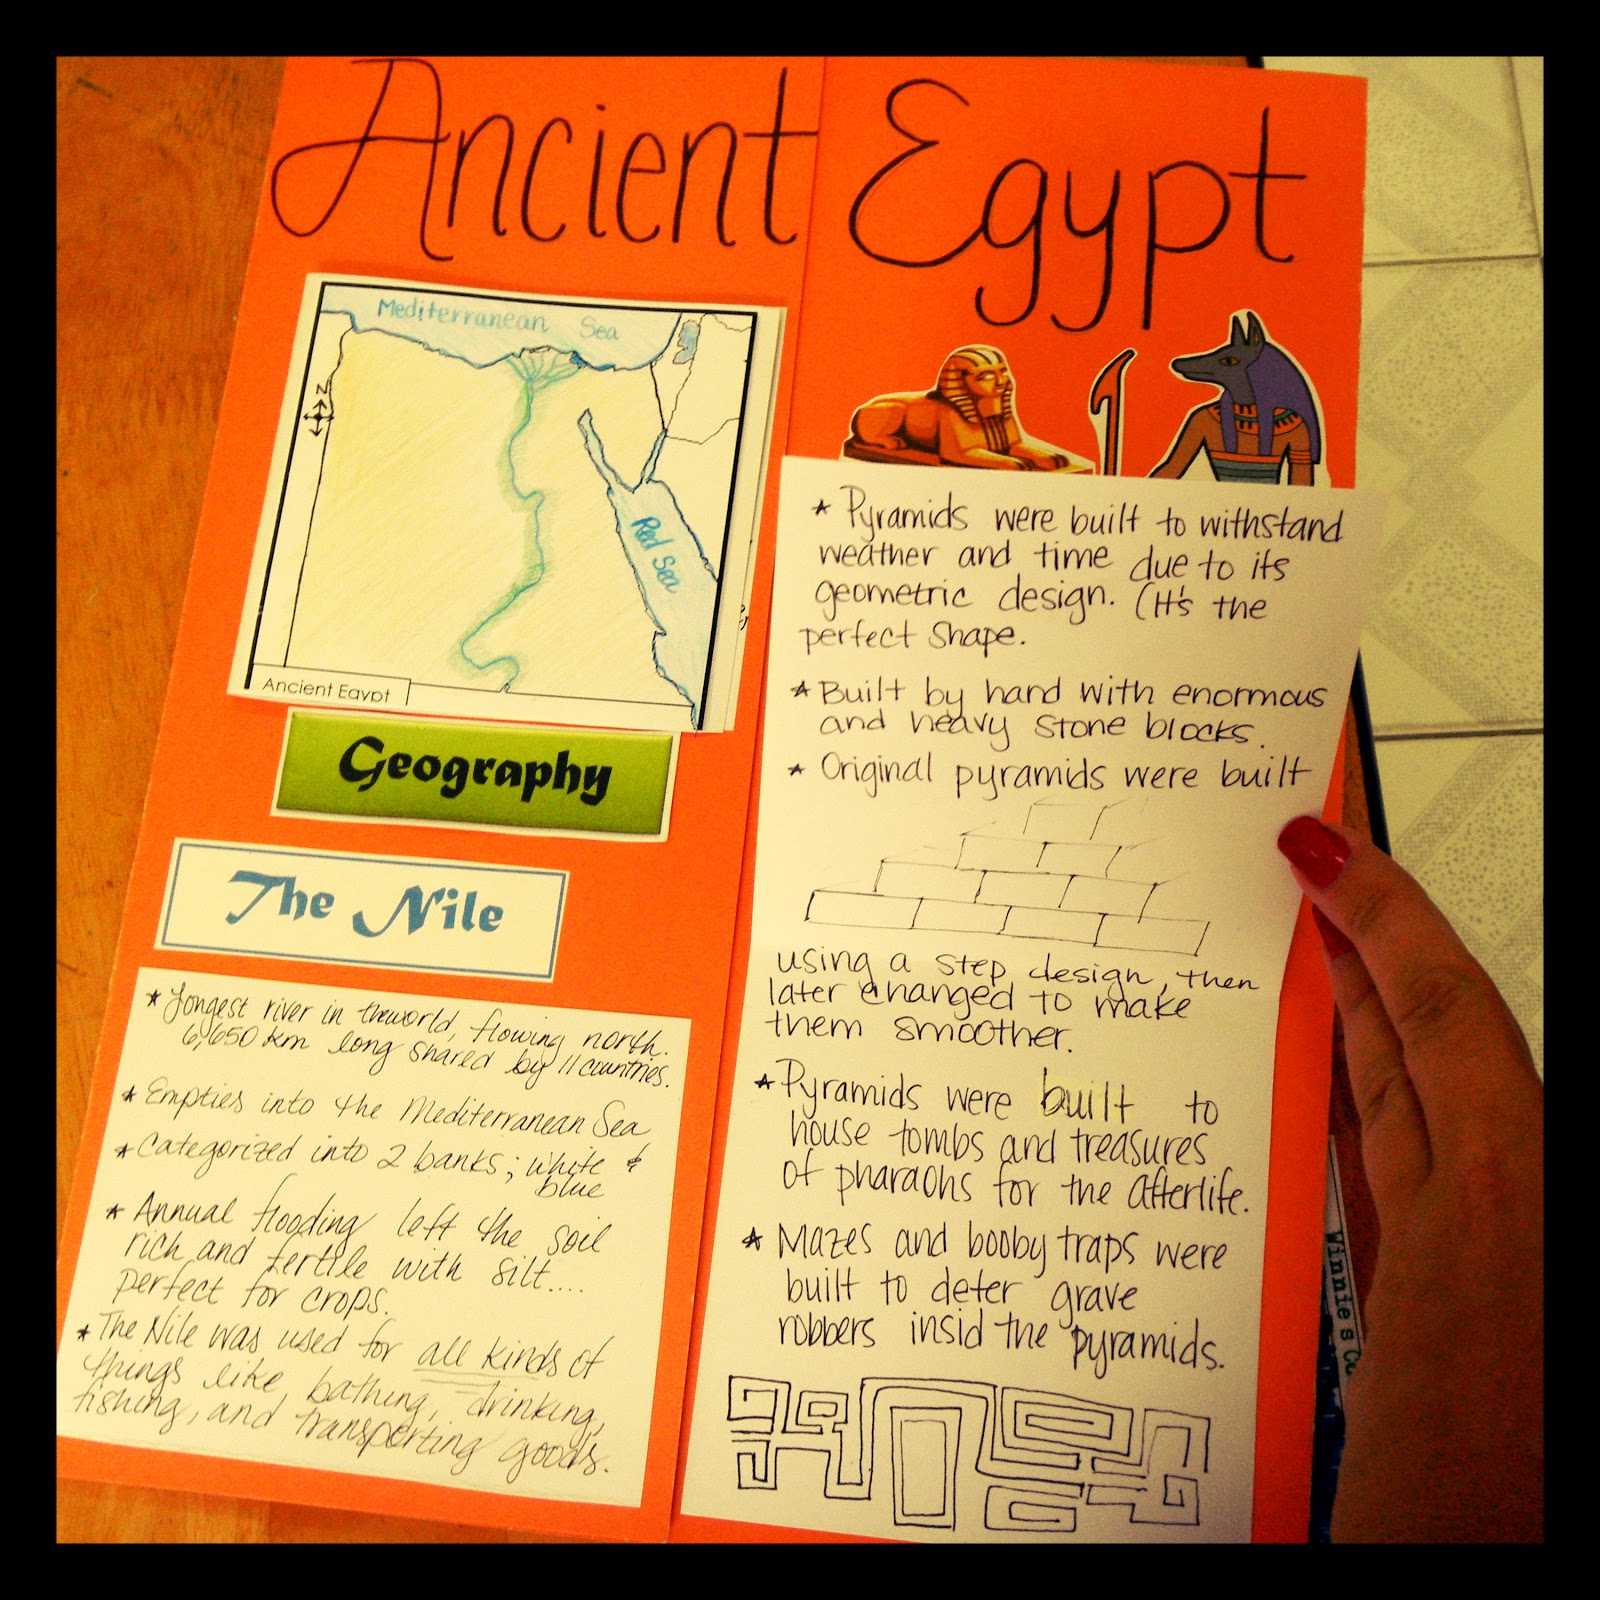 Ancient Egypt
Mediterranean Sea
N
Red Sea
Ancient Egypt
Geography
The Nile
* Longest river in the world, flowing north.
6,650 km long shared by 11 countries.
* Empties into the Mediterranean Sea
* Categorized into 2 banks; white &
blue
* Annual flooding left the soil
rich and fertile with silt....
perfect for crops.
* The Nile was used for all kinds of
things like, bathing, drinking,
fishing, and transporting goods.
* Pyramids were built to withstand
weather and time due to its
geometric design. (It's the
perfect shape.
* Built by hand with enormous
and heavy stone blocks.
* Original pyramids were built
using a step design, then
later changed to make
them smoother.
* Pyramids were built to
house tombs and treasures
of pharaohs for the afterlife.
* Mazes and booby traps were
built to deter grave
robbers insid the pyramids.
Winnie's